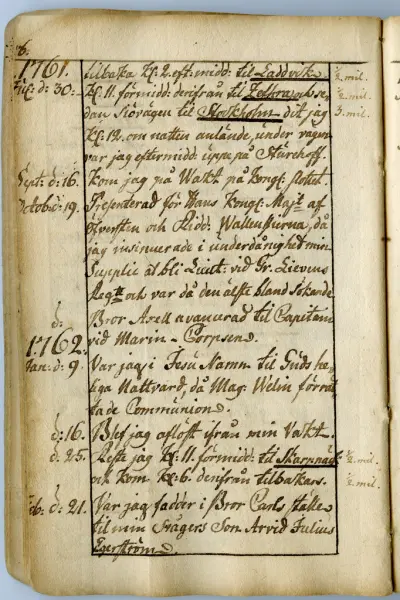 6.
1761. tilbaka Kl: 2. eft: midd: til Laddvik ½ mil.
Jul: d: 30. Kl. 11. förmidd: derifrån til och se- ½ mil.
dan Siövägen til Stockholm dit jag 3. mil.
Kl. 12. om natten anlände, under vägen
var jag eftermidd: uppe på Sturehoff.
Sept: d: 16. Kom jag på Wakt på Kongl. slottet.
Octob: d: 19. Presenterad för Hans Kongl: Majt: af
Öfversten och Ridd: Wallenstierna, då
jag insinuerade i underdånighet min
Supplic at bli Lieut: vid Gr. Lievens
Regte och var då den älste bland Sökande
d: Bror Axell avancerad til Capitain
1762. vid Marin-Corpsen.
Jan: d: 9. Var jag i Jesu Namn til Guds he-
liga Nattvard, då Mag: Welin förrät-
tade Communion.
d: 16. Blef jag aflöst ifrån min Vakt.
d: 25. Reste jag Kl: 11. förmidd: til Skarpnäck ½ mil.
och kom Kl: 6. derifrån tilbakars. ½ mil.
Feb: d: 21. Var jag fadder i Bror Carls ställe
til min Svågers Son Arvid Julius
Egerström.